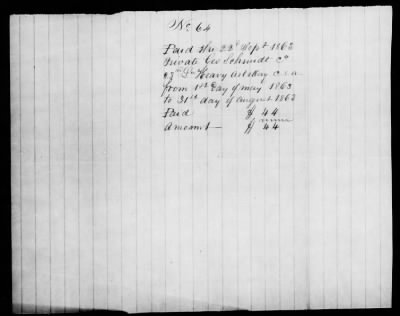 No 64
Paid the 22d Sept 1863
Private Geo Schmidt Co
Heavy Artillery C.S.A
from 1st day of may 1863
to 31st day of august 1863
Paid $ 44
Amount — $ 44